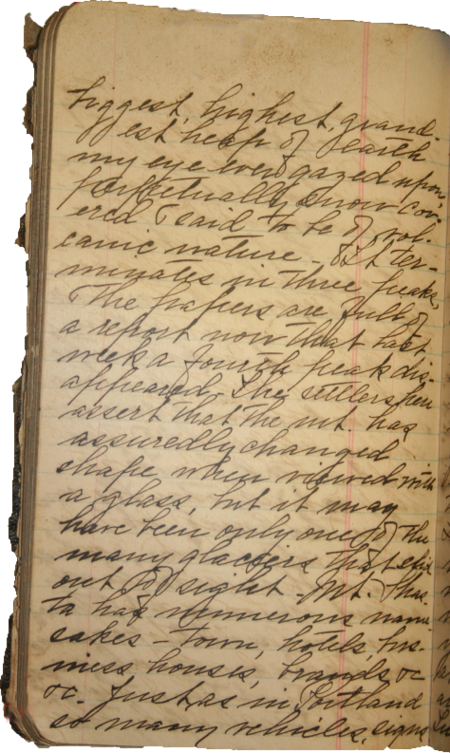 biggest, highest, grand-
est heap of earth
my eye ever gazed upon,
perpetually snow cov-
ered & said to be of vol-
canic nature - It ter-
minates in three peaks,
The papers are full of
a report now that last
week a fourth peak dis-
appeared. The settlers here
assert that the mt. has
assuredly changed
shape when viewed with
a glass, but it may
have been only one of the
many glaciers that slid
out of sight - Mt. Shas-
ta has numerous name-
sakes - town, hotels, bus-
iness houses, brands &c
&c. Just as in Portland
so many vehicles, signs